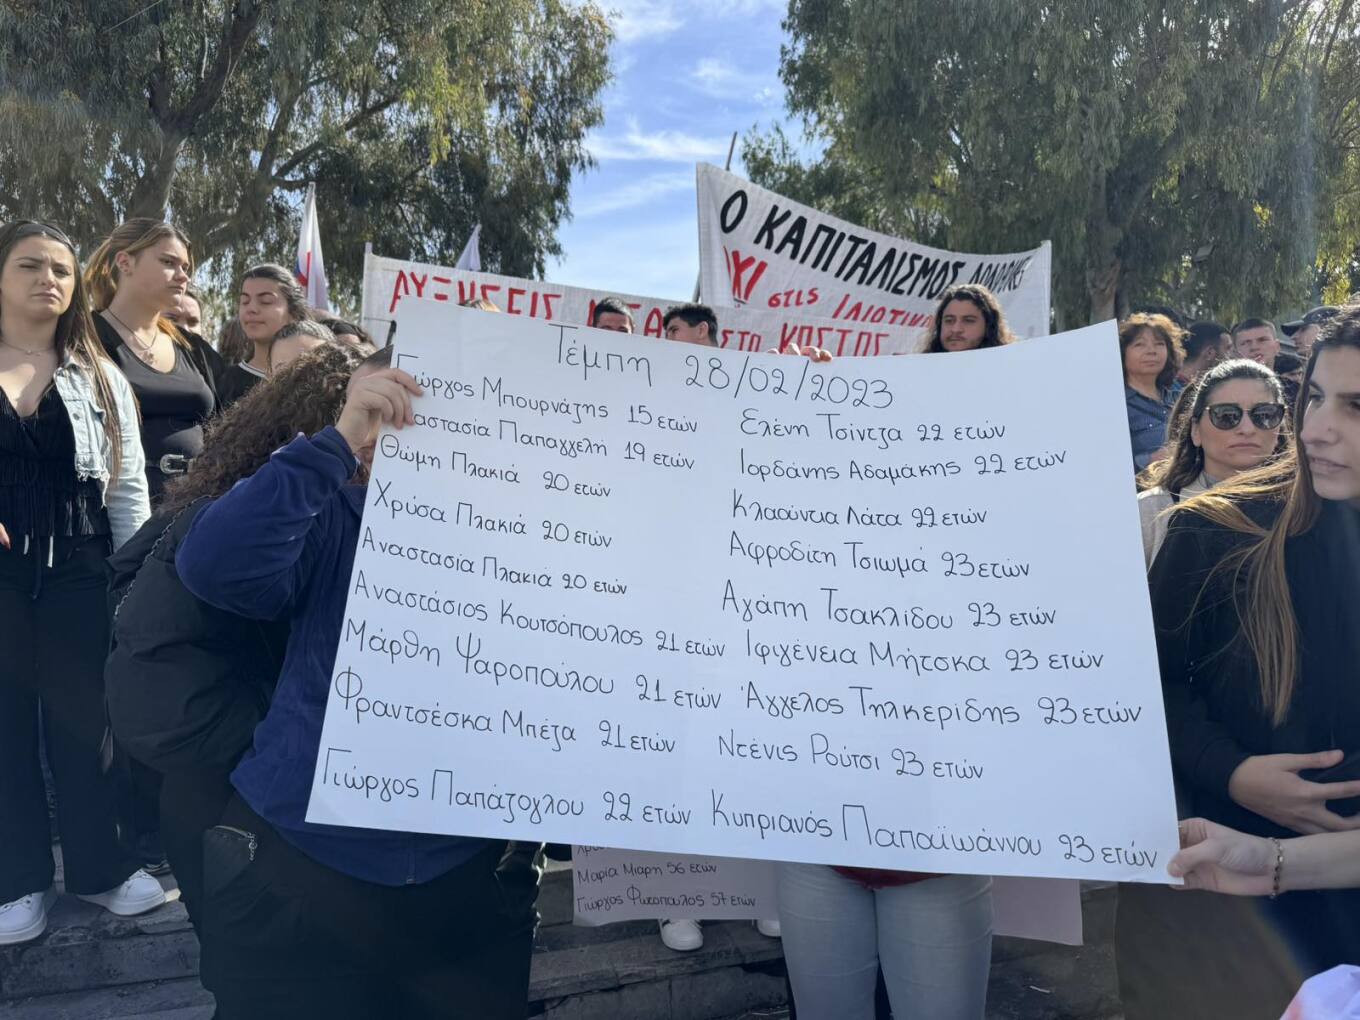 Ο ΚΑΠΙΤΑΛΙΣΜΟΣ
ΟΧΙ στις ΙΔΙΩΤΙΚ
ΑΥΞΗΣΕΙΣ
ΣΤΟ ΚΟΣΤΟΣ
Τέμπη 28/02/2023
Γιώργος Μπουρνάζης 15 ετών
αστασία Παπαγγελή 19 ετών
Θώμη Πλακιά 20 ετών
Χρύσα Πλακιά 20 ετών
Αναστασία Πλακιά 20 ετών
Αναστάσιος Κουτσόπουλος 21 ετών
Μάρθη Ψαροπούλου 21 ετών
Φραντσέσκα Μπέζα 21 ετών
Γιώργος Παπάζογλου 22 ετών
Ελένη Τσίντζα 22 ετών
Ιορδάνης Αδαμάκης 22 ετών
Κλαούντια Λάτα 22 ετών
Αφροδίτη Τσιωμά 23 ετών
Αγάπη Τσακλίδου 23 ετών
Ιφιγένεια Μήτσκα 23 ετών
Άγγελος Τηλκερίδης 23 ετών
Ντένις Ρούτσι 23 ετών
Κυπριανός Παπαϊωάννου 23 ετών
Μαρία Μιαρη 56 ετών
Γιώργος Φωτοπουλος 57 ετών